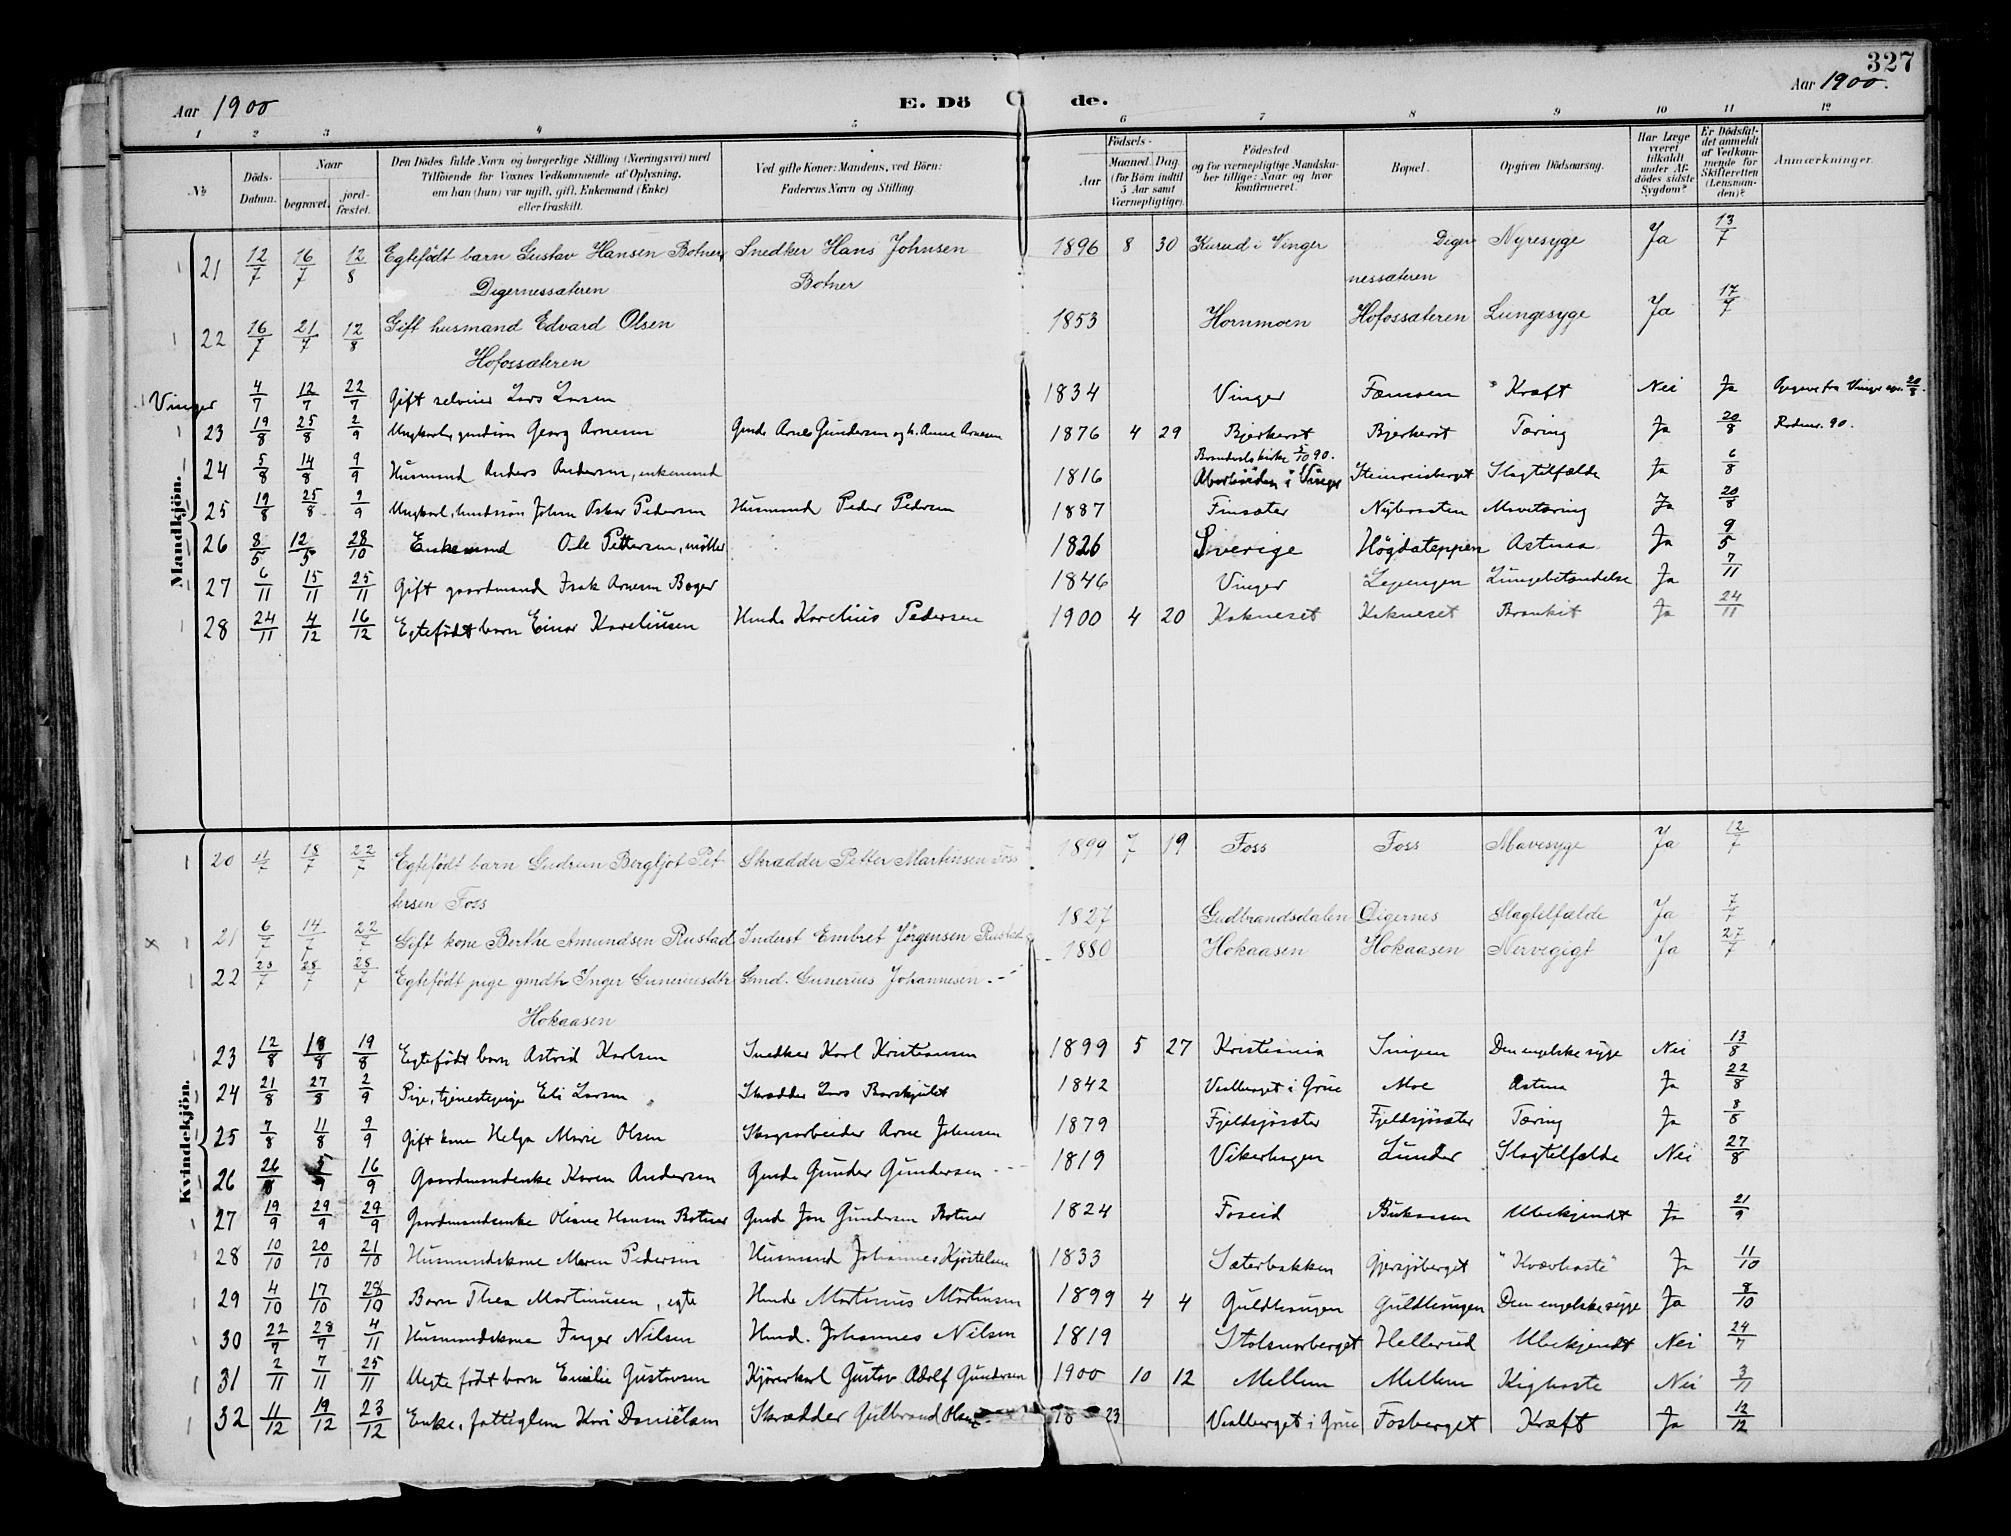 327
Aar 1900 E. Dö de. Aar 1900.
1 2 3 4 5 6 7 8 9 10 11 12
No
Döds-Datum.
Naar
begravet.
jord-fæstet.
Den Dödes fulde Navn og borgerlige Stilling (Næringsvei) med
Tilföiende for Voxnes Vedkommende af Oplysning,
om han (hun) var ugift, gift, Enkemand (Enke)
eller fraskilt.
Ved gifte Koner: Mandens, ved Börn:
Faderens Navn og Stilling.
Födsels-
Aar
Maaned. Dag.
(for Börn indtil
5 Aar samt
Værnepligtige).
Födested
og for værnepligtige Mandska-
ber tillige: Naar og hvor
konfirmeret.
Bopæl.
Opgiven Dödsaarsag.
Har Læge
været
tilkaldt
under Af-
dödes sidste
Sygdom?
Er Dödsfal-
det anmeldt
af Vedkom-
mende for
Skifteretten
(Lensman-
den)?
Anmærkninger.
Mandkjön.
21 12/7 16/7 12/8 Egtefödt barn Gustav Hansen Botner, Snedker Hans Johnsen 1896 8 30 Kurud i Vinger Diger Nyresyge Ja 13/7
Digernessæteren Botner nessæteren
22 16/7 21/7 12/8 Gift husmand Edvard Olsen 1853 Hornmoen Hofossæteren Lungesyge Ja 17/7
Hofossæteren
Vinger 4/7 12/7 22/7 Gift selveier Lars Larsen 1834 Vinger Fæmoen Kræft Nei Ja
23 19/8 25/8 2/9 Ungkarl, gmdsön Georg Arnesen Gmd. Arne Gundersen og h. Anne Arnesen 1876 4 29 Bjerkerst Bjerkerst Tæring Ja 20/8 Rodenr. 90.
24 5/8 14/8 9/9 Husmand Anders Andersen, enkemand 1816 i Vinger Slagtilfælde Ja 6/8
25 19/8 25/8 9/9 Ungkarl, hmdssön Johan Oskar Pedersen Husmand Peder Pedersen 1887 Finsæter Mavetæring Ja 20/8
26 8/5 12/5 28/10 Enkemand Ole Pettersen, möller 1826 Sverige Högdateppen Astma Ja 9/5
27 6/11 15/11 25/11 Gift gaardmand Isak Arnesen Boger 1846 Vinger Lungebetændelse Ja 7/11
28 24/11 4/12 16/12 Egtefödt barn Einar Kareliusen Hmd. Karelius Pedersen 1900 4 20 Kakneset Kakneset Bronkit Ja 24/11
Kvindekjön.
20 11/7 18/7 22/7 Egtefödt barn Gudrun Bergljot Pet Skrædder Petter Martinsen Foss 1899 7 19 Foss Foss Mavesyge Ja 12/7
tersen Foss
21 6/7 14/7 22/7 Gift kone Berthe Amundsen Rustad Inderst Embret Jörgensen Rustad 1827 Gudbrandsdalen Digernes Slagtilfælde Ja 7/7
22 23/7 28/7 28/7 Egtefödt pige gmdtr Inger Guneriusdtr Gmd. Gunerius Johannesen 1880 Hokaasen Hokaasen Nervegigt Ja 27/7
Hokaasen
23 12/8 18/8 19/8 Egtefödt barn Astrid Karlsen Snedker Karl Kristiansen 1899 5 27 Kristiania Den engelske syge Nei 13/8
24 21/8 27/8 2/9 Pige, tjenestepige Eli Larsen Skrædder Lars 1842 i Grue Moe Astma Ja 22/8
25 7/8 11/8 9/9 Gift kone Helga Marie Olsen Skogsarbeider Arne Johnsen 1879 Fjeldsjösæter Fjeldsjösæter Tæring Ja 8/8
26 26/8 5/9 16/9 Gaardmandsenke Karen Andersen Gmd. Gunder Gundersen 1819 Vikerhagen Lunder Slagtilfælde Nei 27/8
27 19/9 29/9 29/9 Gaardmandsenke Oliane Hansen Botner Gmd Jon Gundersen Botner 1824 Foseid Bukaasen Ubekjendt Ja 21/9
28 10/10 20/10 21/10 Husmandskone Maren Pedersen Husmand Johannes Kjöstelsen 1833 Sæterbakken Gjersjöberget "Kvævhoste" Ja 11/10
29 4/10 17/10 28/10 Barn Thea Martinusen, egte Hmd. Martinus Martinsen 1899 4 4 Guldhaugen Guldhaugen Den engelske syge Ja 8/10
30 22/7 28/7 4/11 Husmandskone Inger Nilsen Hmd. Johannes Nilsen 1819 Stolsmorberget Hellerud Ubekjendt Nei 24/7
31 2/11 7/11 25/11 Uegte födt barn Emilie Gustavsen Kjörerkarl Gustav Adolf Gundersen 1900 10 12 Mellem Mellem Kighoste Nei 3/11
32 11/12 19/12 23/12 Enke, fattiglem Kari Danielsen Skrædder Gulbrand Olsen 18 23 i Grue Fosberget Kræft Ja 12/12